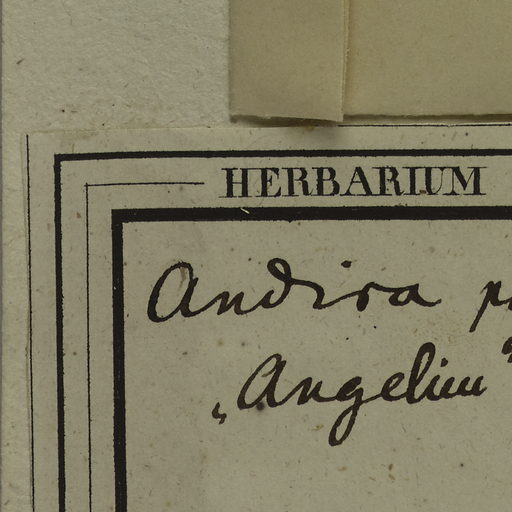 HERBARIUM
Andira
„Angelim"